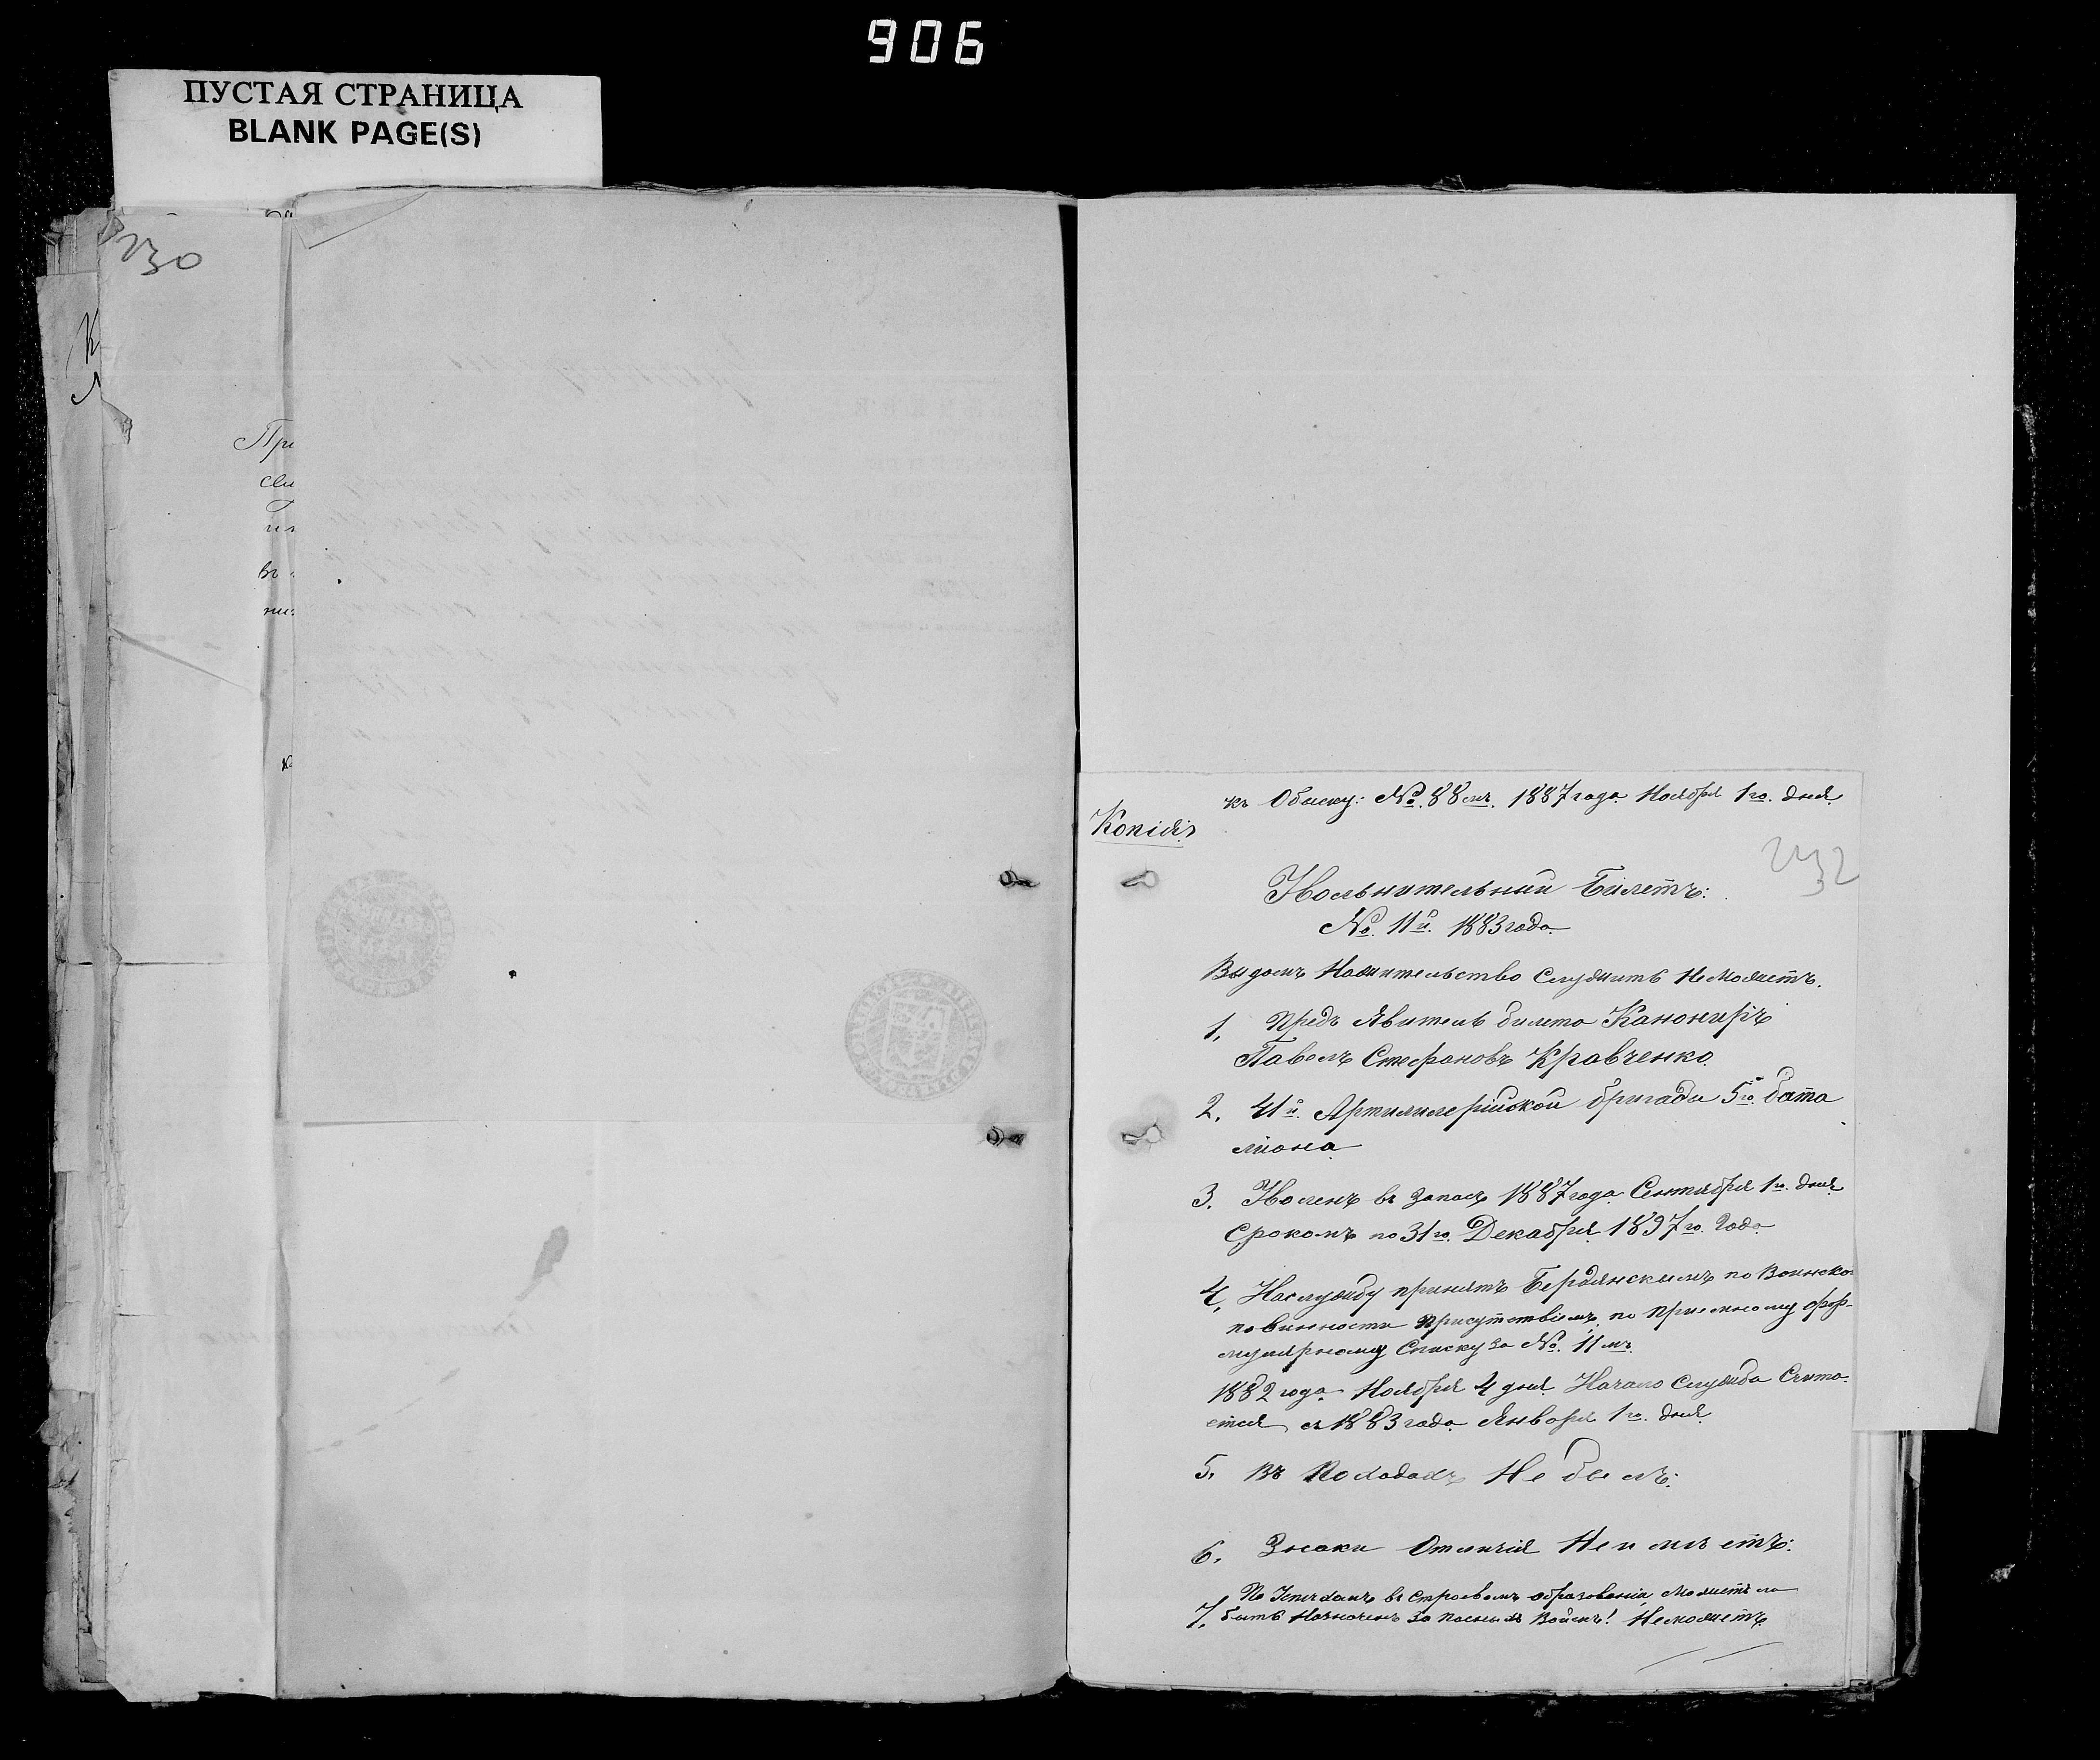 906
ПУСТАЯ СТРАНИЦА
BLANK PAGE(S)
230
Пре
сви
въ
къ Обыску: №. 88мъ. 1887 года Ноября 1го. дня.
Копія
232
Увольнительный Билетъ:
№. 11й. 1883 года.
Видомъ Нажительство Служить Неможетъ.
1. Предъ Явитель билета Канониръ
Павелъ Стефановъ Кравченко
2. 41й. Артилилерійской бригады 5го. бата
лиона
3. Уволенъ въ Запасъ 1887 года Сентября 1го. дня
Срокомъ по 31го. Декабря 1897го. Года
4. Наслужбу принятъ Бердянскимъ по Воинско
повинности Присутствіемъ, по приемному фор-
мулярному Списку за №. 11мъ
1882 года Ноября 4 дня. Начало Служба Счита-
ется съ 1883 года Января 1го. дня.
5. Въ Походахъ Не былъ:
6. Знаки Отличія Неимѣетъ:
7. По Успехамъ въ строевомъ образованіи, Можетъ ли
быть Назначенъ За пасныхъ Войскъ! Неможетъ